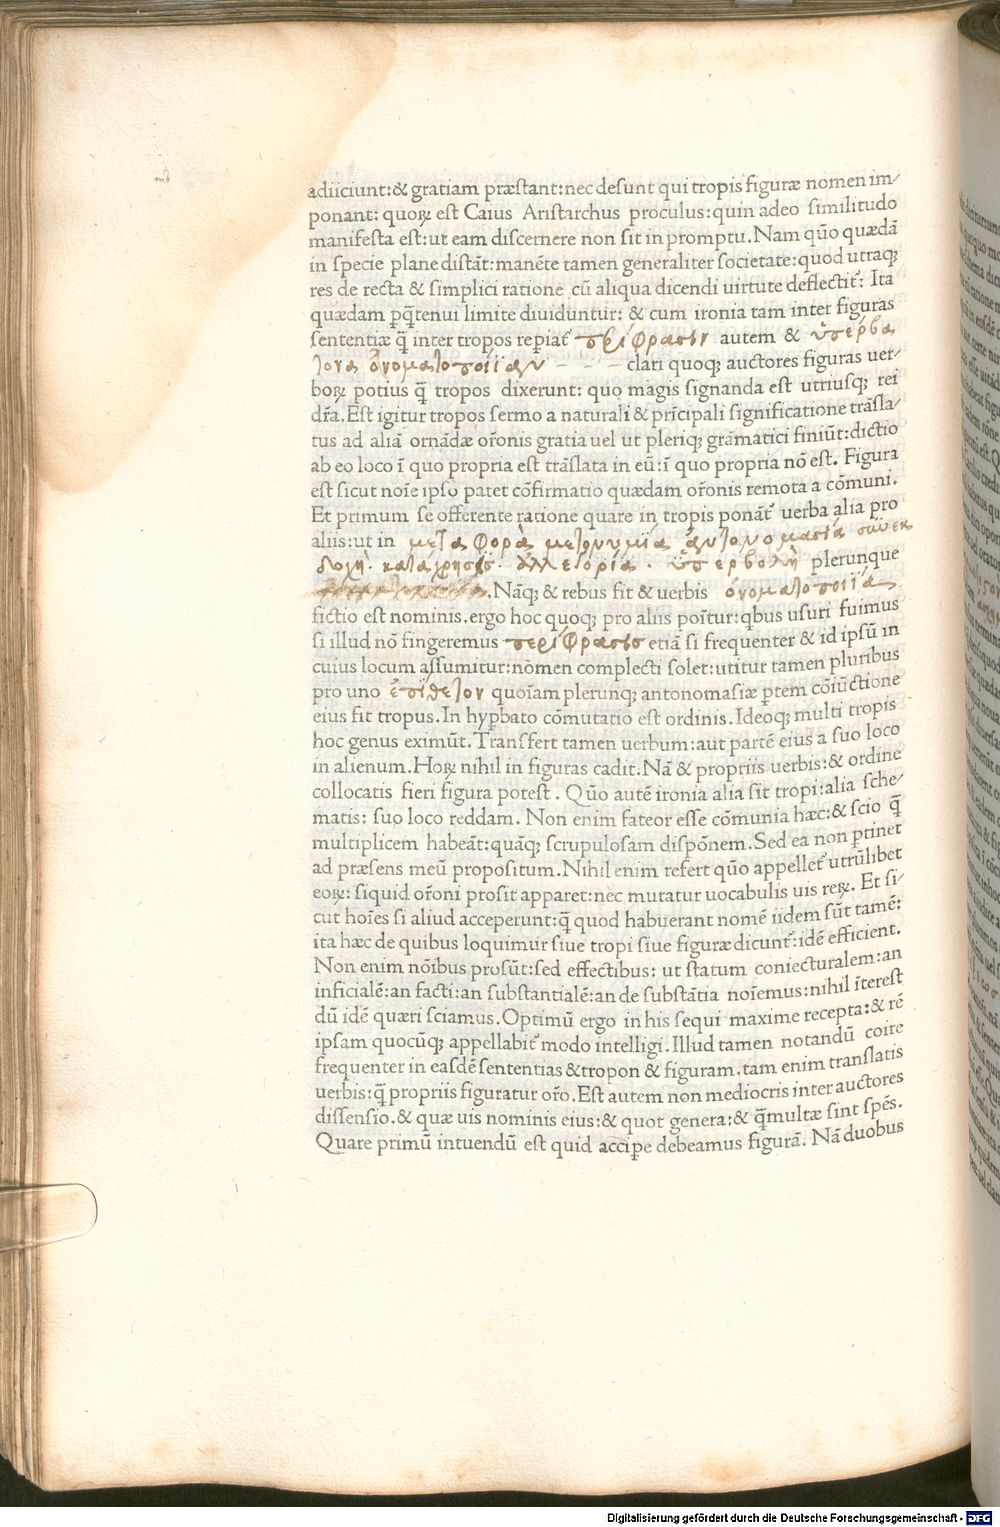 adiiciunt:& gratiam præstant:nec desunt qui tropis figuræ nomen im/
ponant: quoꝝ est Caius Aristarchus proculus:quin adeo similitudo
manifesta est:ut eam discernere non sit in promptu.Nam quõ quædã
in specie plane distãt:manẽte tamen generaliter societate:quod utraqꝫ
res de recta & simplici ratione cũ aliqua dicendi uirtute deflectit᷑: Ita
quædam ꝑq̃tenui limite diuiduntur: & cum ironia tam inter figuras
sententiæ q̃ inter tropos repiat᷑ περίφρασιν autem & ὑπερβα
τονα ὀνοματοποιίαν clari quoqꝫ auctores figuras uer/
boꝝ potius q̃ tropos dixerunt: quo magis signanda est utriusqꝫ rei
dr̃a.Est igitur tropos sermo a naturali & prĩcipali significatione trãsla/
tus ad aliã ornãdæ or̃onis gratia uel ut pleriqꝫ grãmatici finiũt:dictio
ab eo loco ĩ quo propria est trãslata in eũ:ĩ quo propria nõ est. Figura
est sicut noĩe ipso patet cõfirmatio quædam or̃onis remota a cõmuni.
Et primum se offerente ratione quare in tropis ponãt᷑ uerba alia pro
aliis:ut in μεταφορὰ μετονυμία ἀντονομασία συνεκ
δοχὴ. κατάχρησις. ἀλλεγορία. ὑπερβολὴ plerunque
.Nãqꝫ & rebus fit & uerbis ὀνοματοποιία
fictio est nominis.ergo hoc quoqꝫ pro aliis poĩtur:qbus usuri fuimus
si illud nõ fingeremus περίφρασις etiã si frequenter & id ipsũ in
cuius locum assumitur:nomen complecti solet:utitur tamen pluribus
pro uno ἐπίθετον quoĩam plerunqꝫ antonomasiæ ꝑtem cõiũctione
eius fit tropus.In hypbato cõmutatio est ordinis.Ideoqꝫ multi tropis
hoc genus eximũt.Transfert tamen uerbum:aut partẽ eius a suo loco
in alienum.Hoꝝ nihil in figuras cadit.Nã & propriis uerbis:& ordine
collocatis fieri figura potest. Quõ autẽ ironia alia sit tropi:alia sche/
matis: suo loco reddam. Non enim fateor esse cõmunia hæc:& scio q̃
multiplicem habeãt:quãqꝫ scrupulosam dispõnem.Sed ea non ꝑtinet
ad præsens meũ propositum.Nihil enim refert quõ appellet᷑ utrũlibet
eoꝝ: siquid or̃oni prosit apparet:nec mutatur uocabulis uis reꝝ. Et si/
cut hoĩes si aliud acceperunt:q̃ quod habuerant nomẽ iidem sũt tamẽ:
ita hæc de quibus loquimur siue tropi siue figuræ dicunt᷑:idẽ efficient.
Non enim nõibus prosũt:sed effectibus: ut statum coniecturalem:an
inficialẽ:an facti:an substantialẽ:an de substãtia noĩemus:nihil ĩterest
dũ idẽ quæri sciamus.Optimũ ergo in his sequi maxime recepta:& rẽ
ipsam quocũqꝫ appellabit᷑ modo intelligi.Illud tamen notandũ coire
frequenter in easdẽ sententias &tropon & figuram.tam enim translatis
uerbis:q̃ propriis figuratur or̃o.Est autem non mediocris inter auctores
dissensio.& quæ uis nominis eius:& quot genera:& q̃multæ sint spẽs.
Quare primũ intuendũ est quid accipe debeamus figurã. Nã duobus
Digitalisierung gefördert durch die Deutsche Forschungsgemeinschaft - DFG